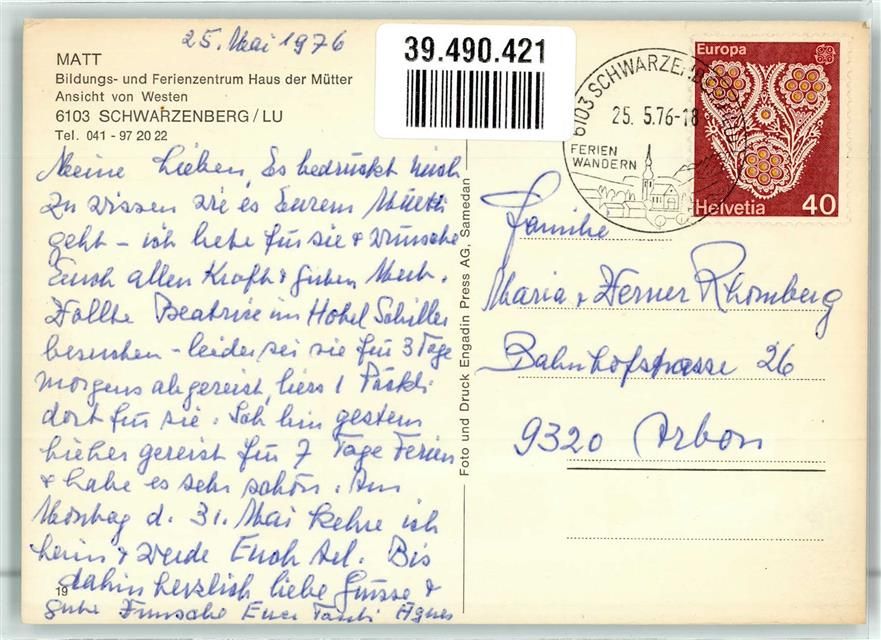 25. Mai 1976
MATT
Bildungs- und Ferienzentrum Haus der Mütter
Ansicht von Westen
6103 SCHWARZENBERG/LU
Tel. 041 - 97 20 22
39.490.421
6103 SCHWARZENBERG
25. 5.76-18
FERIEN
WANDERN
Europa
Helvetia 40
Meine Lieben, Es bedrückt mich
zu wissen wie es Eurem Muetti
geht – ich bete für sie + wünsche
Euch allen Kraft + guten Mut.
Wollte Beatrice im Hotel Schiller
besuchen – leider sei sie für 3 Tage
morgens abgereist, liess 1 Päckli
dort für sie. Ich bin gestern
hieher gereist für 7 Tage Ferien
+ habe es sehr schön. Am
Montag d. 31. Mai kehre ich
heim + werde Euch tel. Bis
dahin herzlich liebe Grüsse +
gute Wünsche Euer Tanti Agnes
19
Foto und Druck Engadin Press AG, Samedan
Familie
Maria + Werner Rhomberg
Bahnhofstrasse 26
9320 Arbon